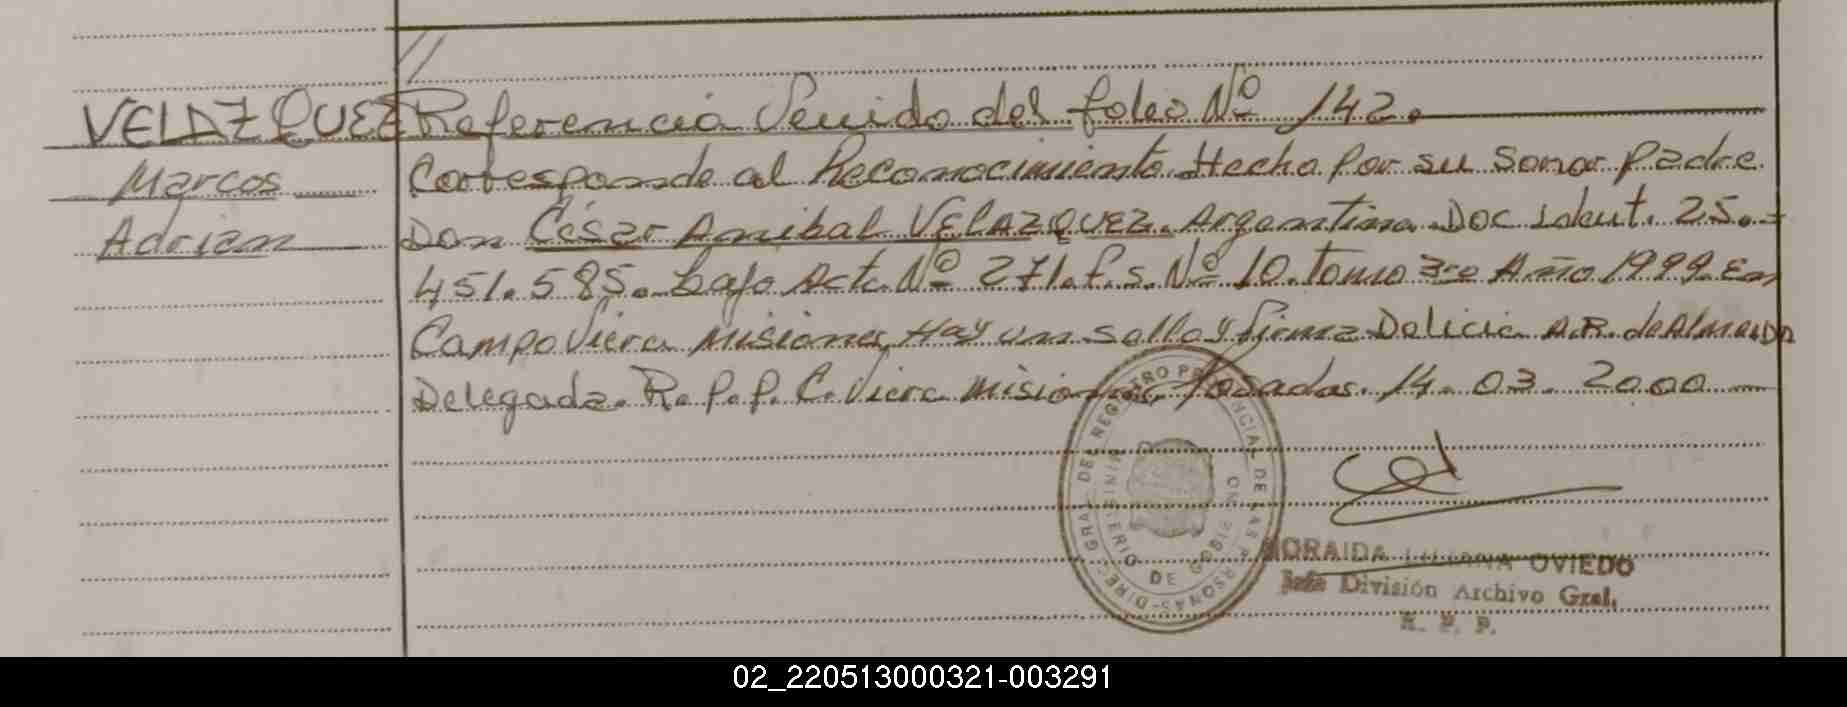 //
VELAZQUEZ Referencia Venido del foleo Nº 142.
Marcos Corresponde al Reconocimiento Hecho Por su Senor Padre
Adrian Don César Anibal VELAZQUEZ. Argentino. Doc ident. 25.-
451.585. bajo Acta Nº 271. f.s. Nº 10. Tomo 3ro Año 1999. En
Campo Viera Misiones Hay un sello y firma Delicia A.R. de Almeida
Delegada. R. P. P. C. Viera Misiones, Posadas. 14. 03. 2000
DIREC. GRAL. DEL REGISTRO PROVINCIAL DE LAS PERSONAS
MINISTERIO DE GOBIERNO
MORAIDA LILIANA OVIEDO
Jefa División Archivo Gral.
R. P. P.
02_220513000321-003291